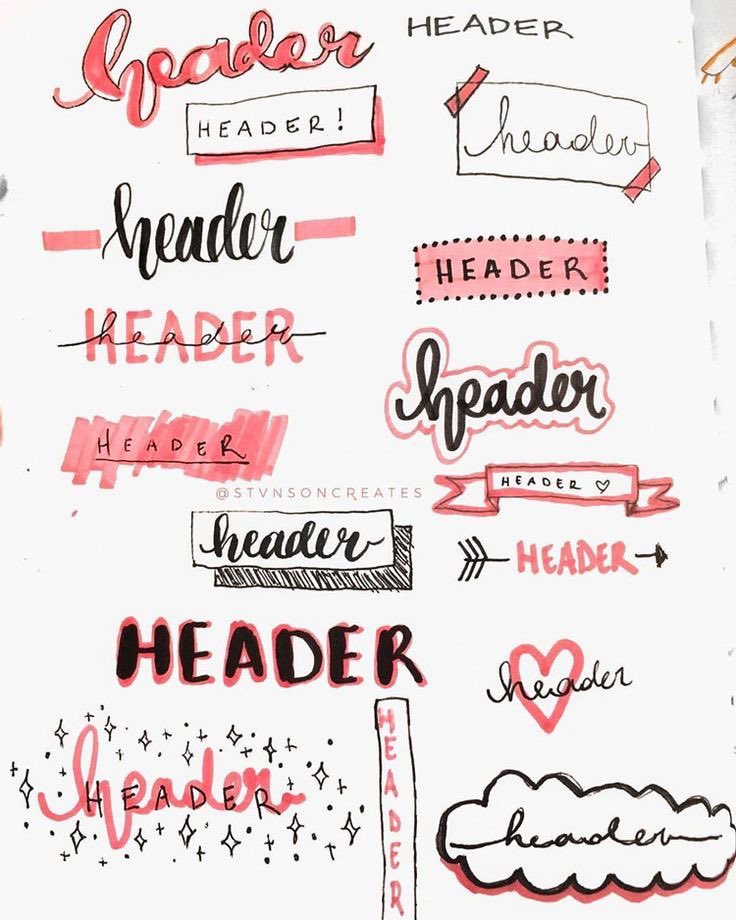 header
HEADER
HEADER!
header
header
HEADER
HEADER
header
header
HEADER
HEADER ♡
@STVNSONCREATES
header
HEADER
HEADER
header
header
HEADER
HEADER
header